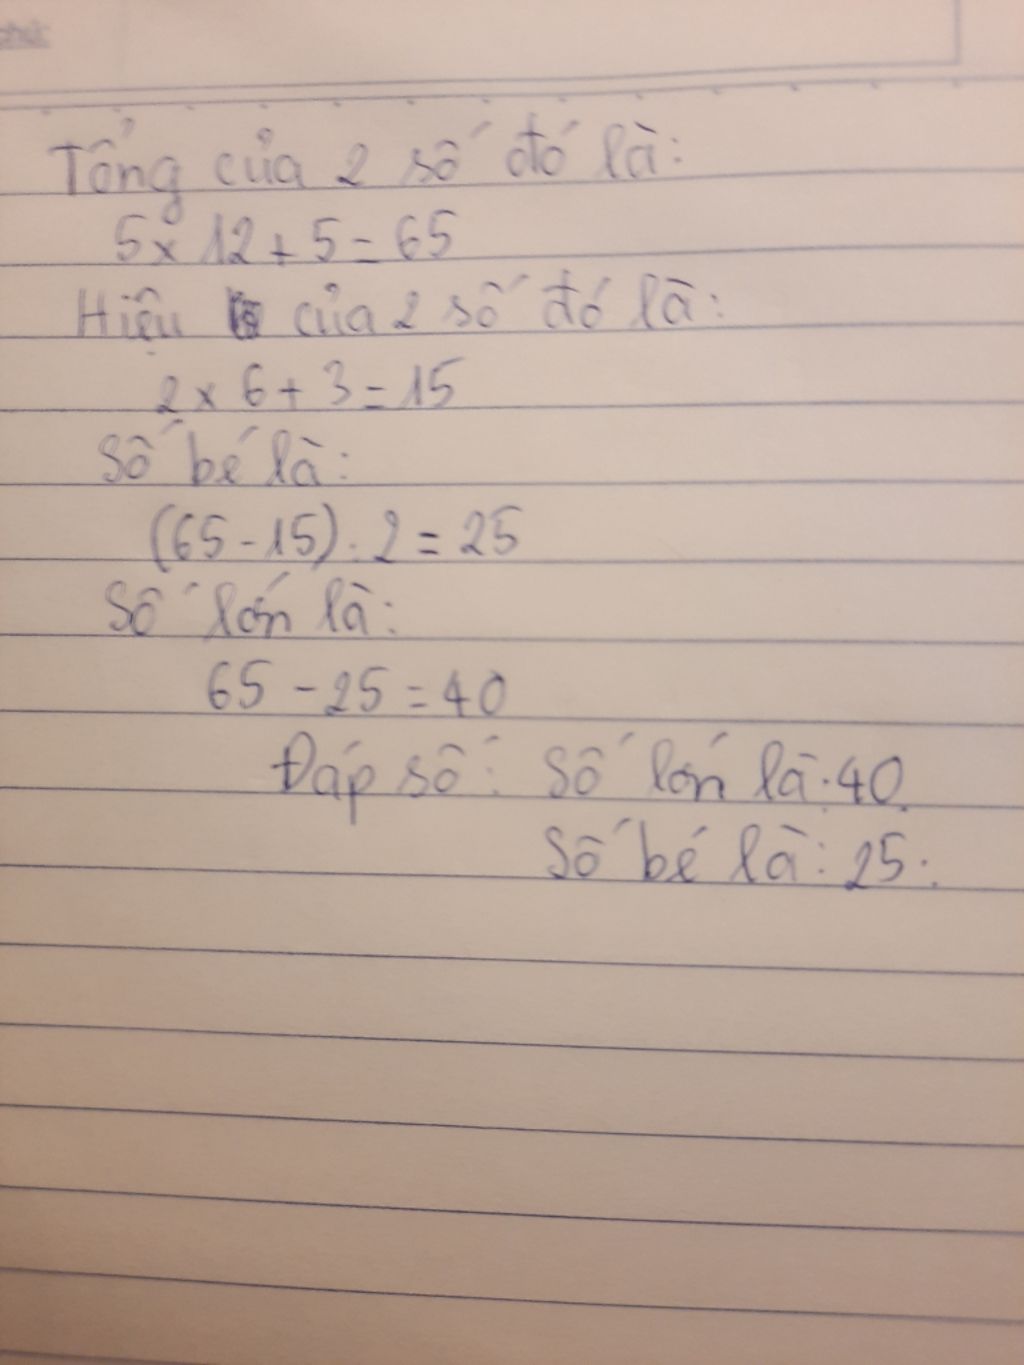 Tổng của 2 số đó là:
5 x 12 + 5 = 65
Hiệu của 2 số đó là:
2 x 6 + 3 = 15
Số bé là:
(65 - 15) : 2 = 25
Số lớn là:
65 - 25 = 40
Đáp số: Số lớn là: 40.
Số bé là: 25.